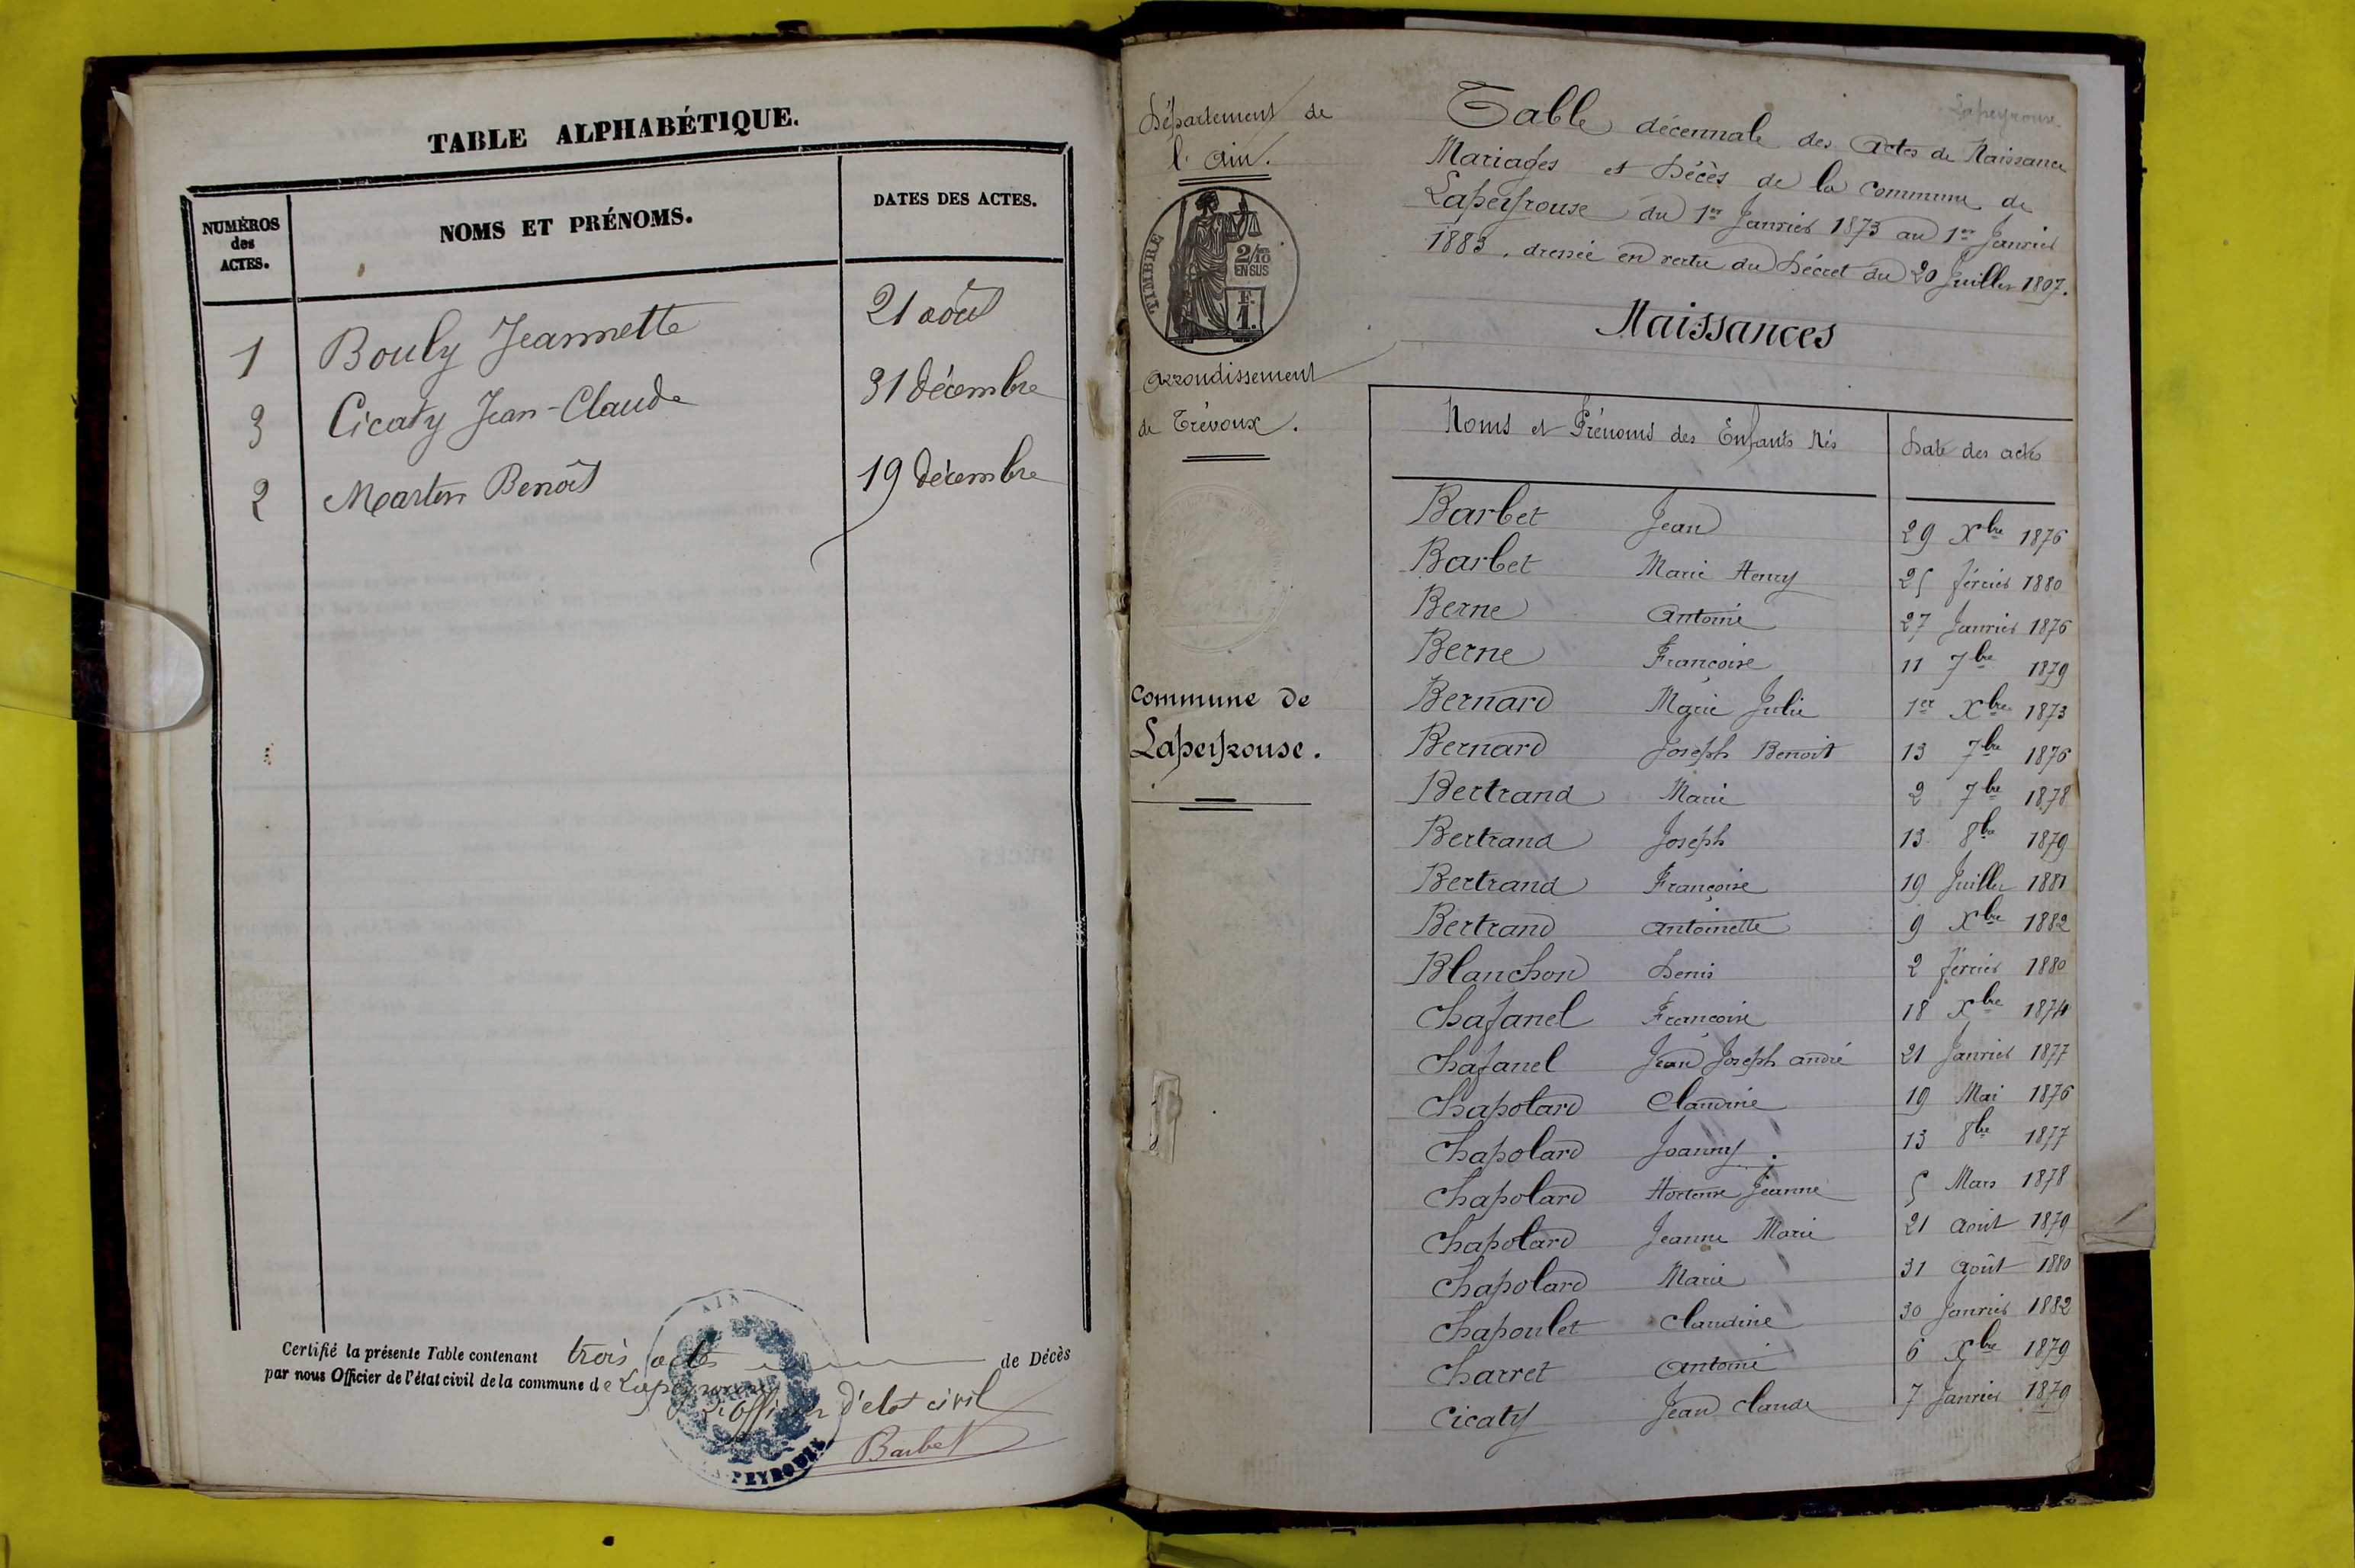 TABLE ALPHABÉTIQUE.
NUMÉROS des ACTES.
NOMS ET PRÉNOMS.
DATES DES ACTES.
1 Bouly Jeannette 21 août
3 Cicaty Jean-Claude 31 décembre
2 Martin Benoît 19 décembre
Certifié la présente Table contenant trois actes de Décès
par nous Officier de l'état civil de la commune de Lapeyrouse
L'officier d'état civil
Barbet
AIN
MAIRIE
LAPEYROUSE
Département de
l'Ain.
TIMBRE
2/10
EN SUS
F.
1.
Arrondissement
de Trévoux.
Commune de
Lapeyrouse.
Lapeyrouse.
Table décennale des Actes de Naissance
Mariages et Décès de la commune de
Lapeyrouse du 1er Janvier 1873 au 1er Janvier
1883, dressée en vertu du Décret du 20 Juillet 1807.
Naissances
Noms et Prénoms des Enfants Nés Date des actes
Barbet Jean 29 Xbre 1876
Barbet Marie Henry 25 février 1880
Berne Antoine 27 Janvier 1876
Berne Françoise 11 7bre 1879
Bernard Marie Julie 1er Xbre 1873
Bernard Joseph Benoit 13 7bre 1876
Bertrand Marie 2 7bre 1878
Bertrand Joseph 13 8bre 1879
Bertrand Françoise 19 Juillet 1881
Bertrand Antoinette 9 Xbre 1882
Blanchon Denis 2 février 1880
Chafanel Françoise 18 Xbre 1874
Chafanel Jean Joseph André 21 Janvier 1877
Chapolard Claudine 19 Mai 1876
Chapolard Joanny 13 8bre 1877
Chapolard Hortense Jeanne 5 Mars 1878
Chapolard Jeanne Marie 21 Août 1879
Chapolard Marie 31 Août 1880
Chapoulet Claudine 30 Janvier 1882
Charret Antoine 6 Xbre 1879
Cicaty Jean Claude 7 Janvier 1879